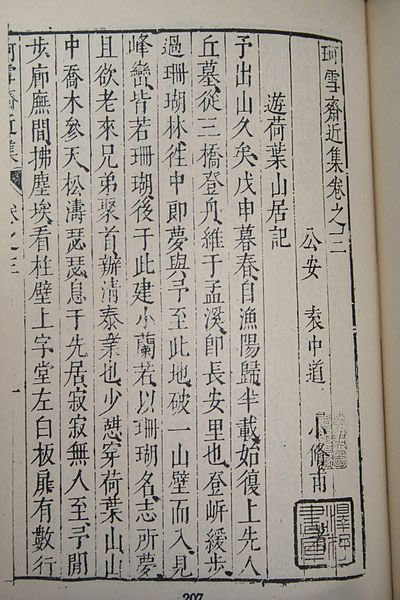 珂雪齋近集卷之三
公安 袁中道 小修甫
遊荷葉山居記
予出山久矣戊申暮春自漁陽歸半載始復上先人
丘墓從三橋登舟維于孟溪卽長安里也登岍緩步
過珊瑚林徃中郎夢與予至此地破一山壁而入見
峰巒皆若珊瑚後于此建小蘭若以珊瑚名志所夢
且欲老來兄弟聚首辦清泰業也少憇穿荷葉山山
中喬木參天松濤瑟瑟息于先居寂寂無人至予閒
步廊廡間拂塵埃看柱壁上字堂左白板扉有數行
珂雪齋近集 卷之三 一
207